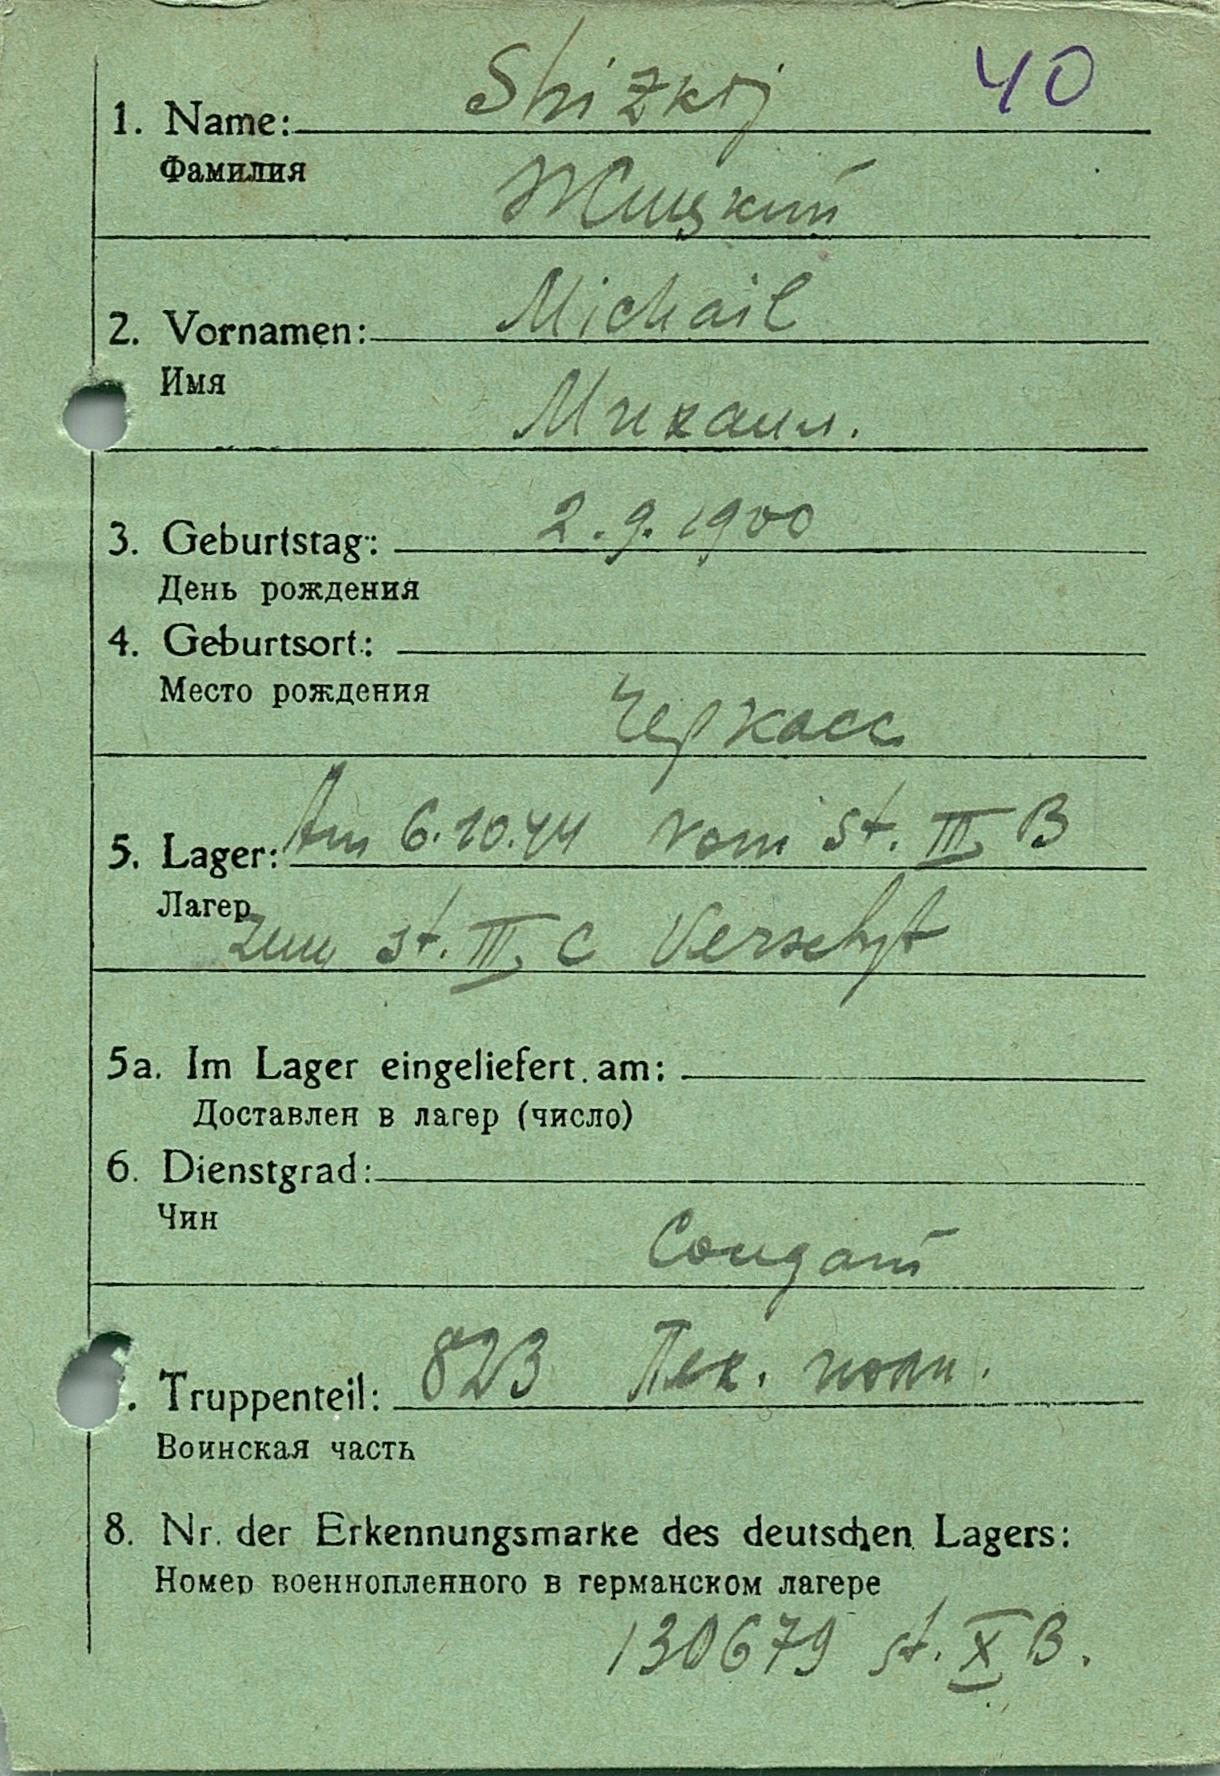 40
1. Name: Shizkij
Фамилия
Жицкий
2. Vornamen: Michail
Имя
Михаил.
3. Geburtstag: 2.9.1900
День рождения
4. Geburtsort:
Место рождения
Черкасс
5. Lager: Am 6.10.44 vom St. III B
Лагер
zum St. III C Verscht
5a. Im Lager eingeliefert am:
Доставлен в лагер (число)
6. Dienstgrad:
Чин
Солдат
. Truppenteil: 823 Пех. полк.
Воинская часть
8. Nr. der Erkennungsmarke des deutschen Lagers:
Номер военнопленного в германском лагере
130679 St. X B.